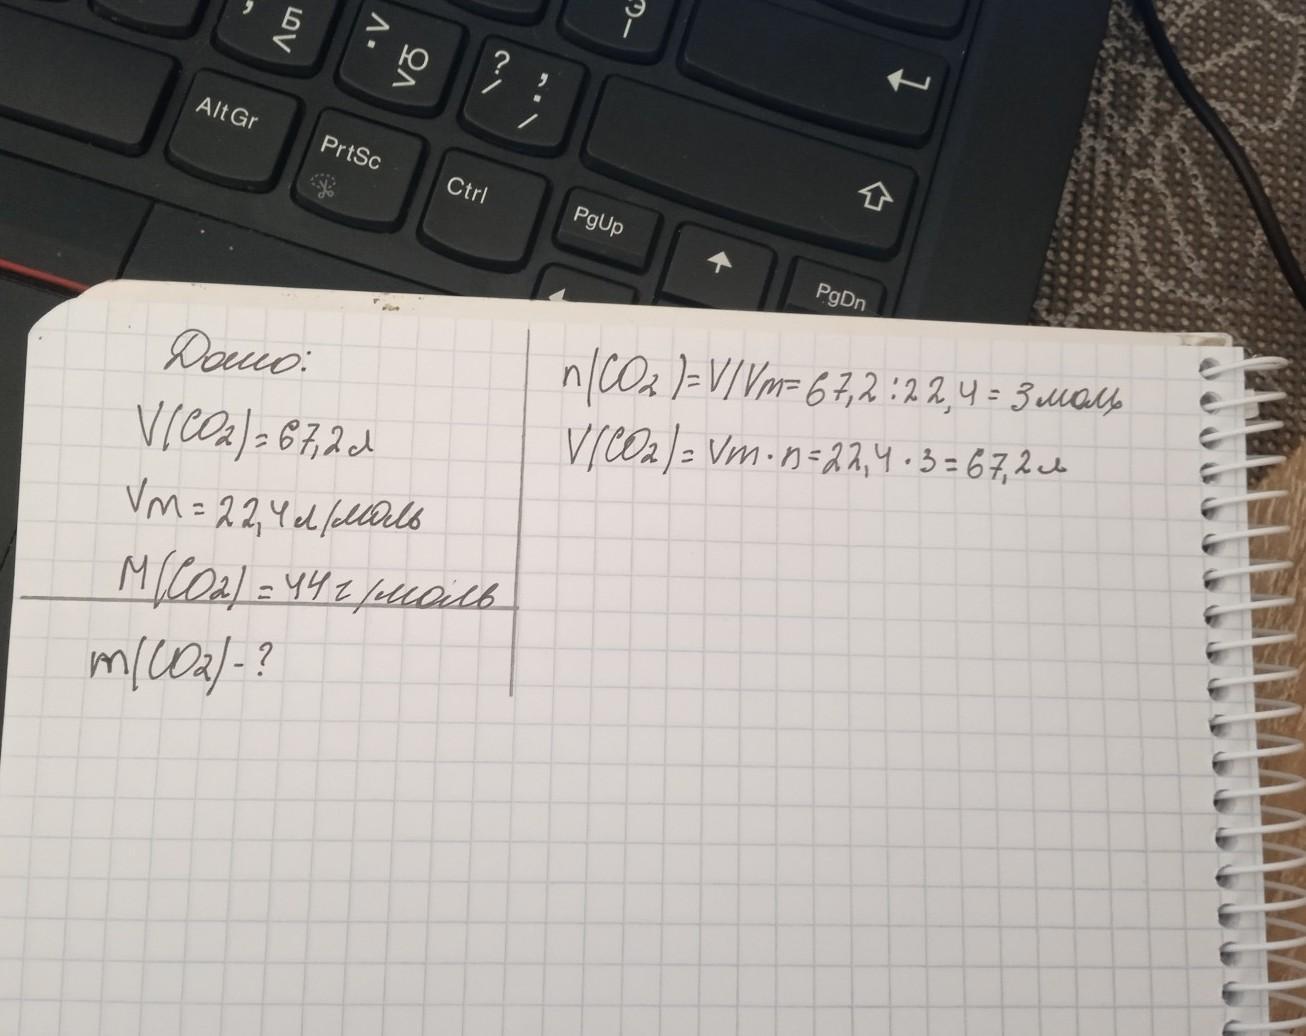 Б
<
>
.
Ю
>
?
/
,
.
/
Э
AltGr
PrtSc
Ctrl
PgUp
PgDn
Дано:
V(CO2)=67,2л
Vm=22,4л/моль
M(CO2)=44г/моль
m(CO2)-?
n(CO2)=V/Vm=67,2:22,4=3моль
V(CO2)=Vm·n=22,4·3=67,2л